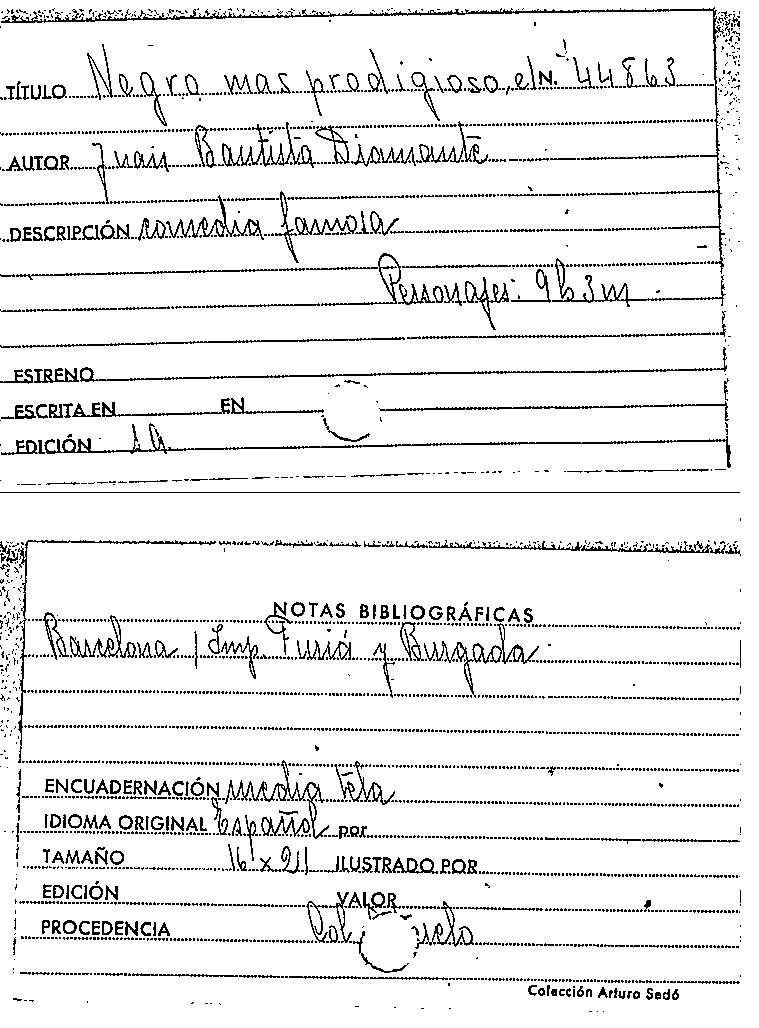 TÍTULO Negro mas prodigioso, el N. 44863
AUTOR Juan Bautista Diamante
DESCRIPCIÓN comedia famosa
Personajes: 9 h 3 m
ESTRENO
ESCRITA EN EN
EDICIÓN
NOTAS BIBLIOGRÁFICAS
Barcelona / Imp. Furiá y Burgada
ENCUADERNACIÓN media tela
IDIOMA ORIGINAL Español por
TAMAÑO 16 x 21 ILUSTRADO POR
EDICIÓN VALOR
PROCEDENCIA Col.
Colección Arturo Sedó